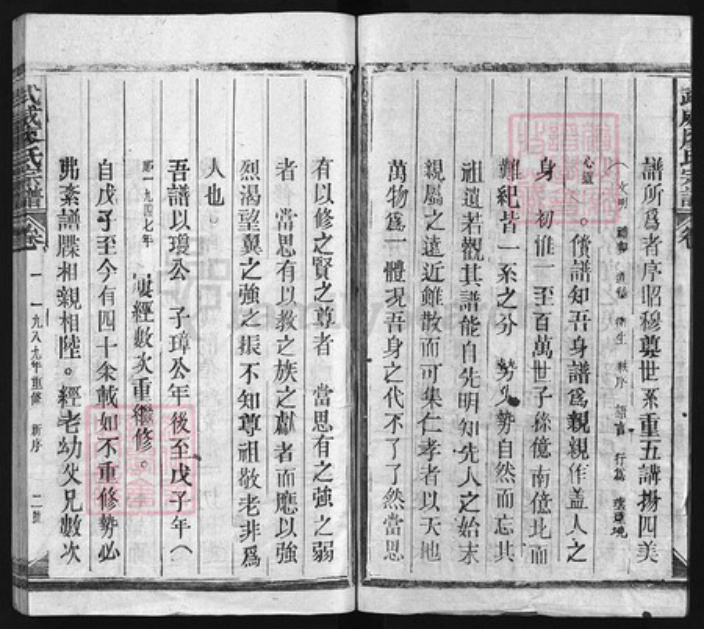 譜所爲者序昭穆奠世系重五講揚四美
（文明 禮貌 清潔 衛生 秩序 語言 行爲 環境
心靈 。 僨譜知吾身譜爲親親作盖人之
身 初惟一至百萬世子孫億南億北而
難紀皆一系之分 勢必勢自然而忘其
祖遺若觀其譜能自先明知先人之始末
親屬之遠近雖散而可集仁孝者以天地
萬物爲一體况吾身之代不了了然當思
武威 氏宗譜 卷一 一九八九年重修 新序 二號
有以修之賢之尊者 當思有之強之弱
者 當思有以教之族之獻者而應以強
烈渴望冀之強之振不知尊祖敬老非爲
人也。
吾譜以瓊公 子璋公年後至戊子年（
卽一九四七年 屢經數次重繼修。
自戊子至今有四十余載如不重修勢必
弗紊譜牒相親相陸。經老幼父兄數次